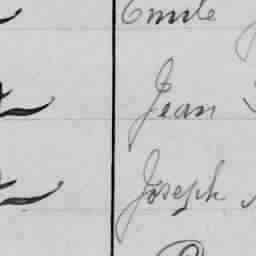 Emile
Jean
Joseph